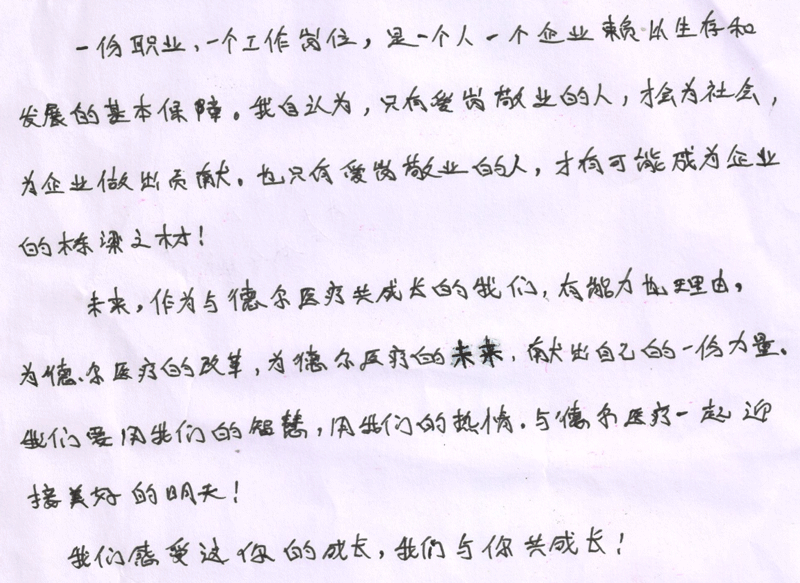 一份职业，一个工作岗位，是一个人一个企业赖以生存和
发展的基本保障。我自认为，只有爱岗敬业的人，才会为社会，
为企业做出贡献。也只有爱岗敬业的人，才有可能成为企业
的栋梁之材！
未来，作为与德尔医疗共成长的我们，有能力也理由，
为德尔医疗的改革，为德尔医疗的未来，献出自己的一份力量。
我们要用我们的智慧，用我们的热情。与德尔医疗一起迎
接美好的明天！
我们感受这你的成长，我们与你共成长！